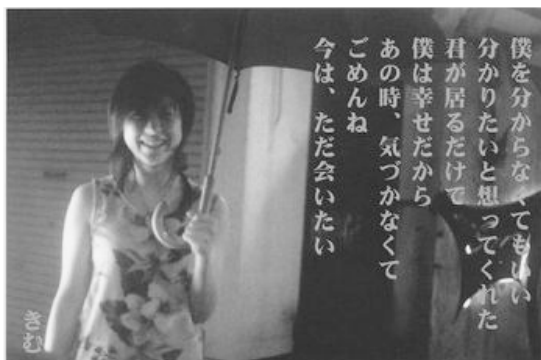 僕を分からなくてもいい
分かりたいと想ってくれた
君が居るだけで
僕は幸せだから
あの時、気づかなくて
ごめんね
今は、ただ会いたい
きむ